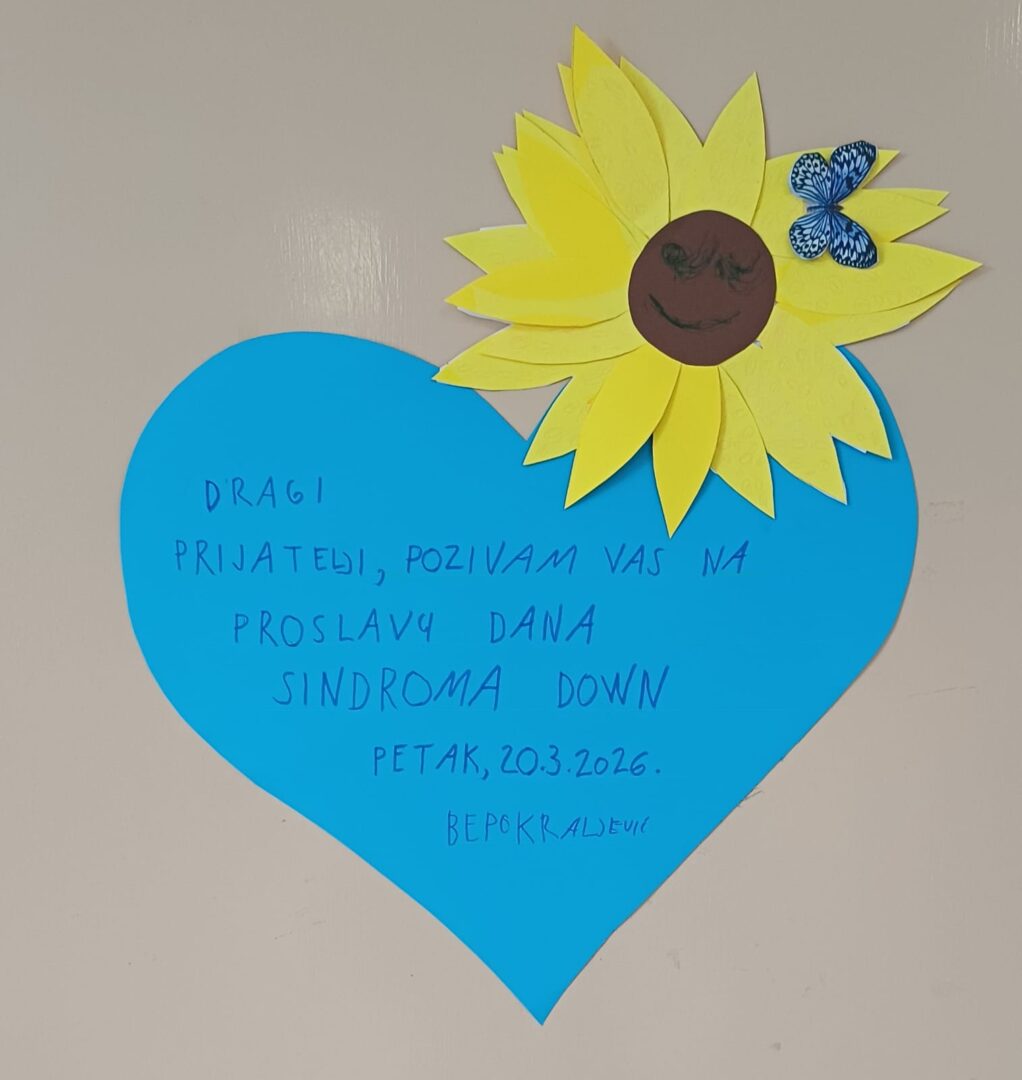 DRAGI
PRIJATELJI, POZIVAM VAS NA
PROSLAVU DANA
SINDROMA DOWN
PETAK, 20.3.2026.
BEPOKRALJEVIĆ